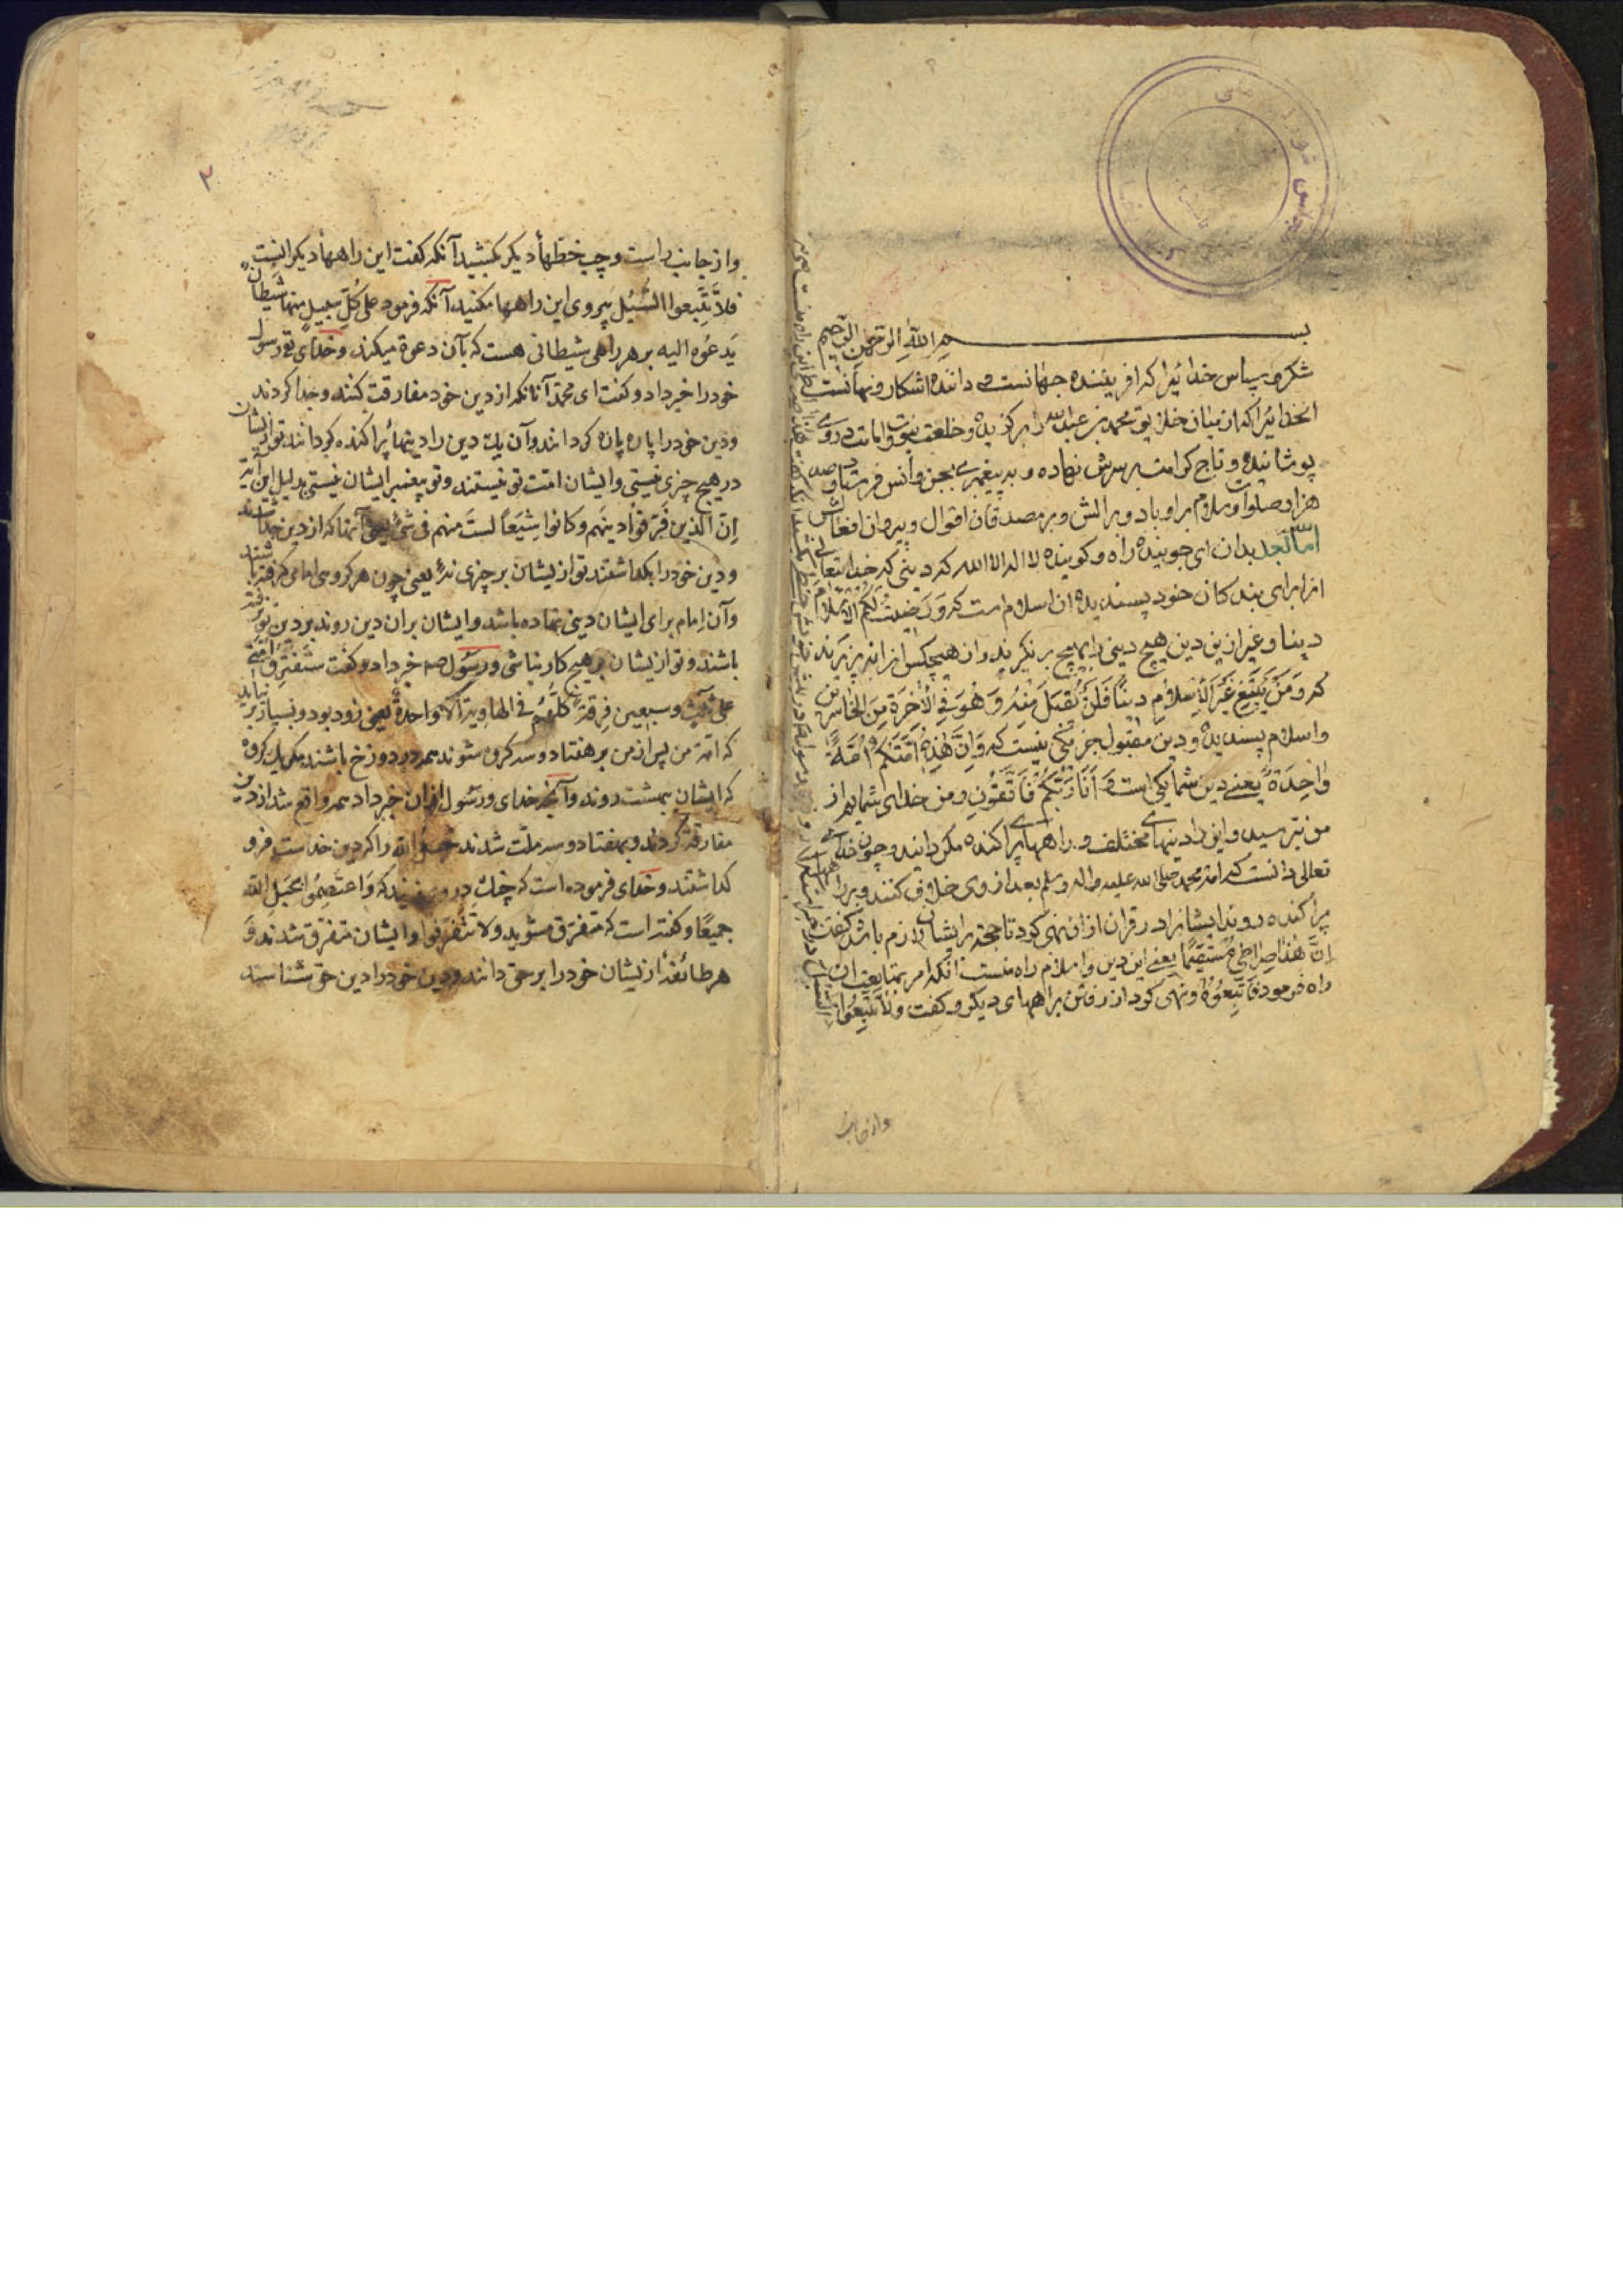 بسم الله الرحمن الرحیم
شکر و سپاس خدائیرا که افریننده جهانست و داننده اشکار و نهانست
انخدائیرا که از میان خلایق محمد بن عبدالله را برکزیده و خلعت نبوت و امامت در وی
پوشانیده و تاج کرامت بر سرش نهاده و به پیغمبری بجن و انس فرستاد و صد
هزار صلوات و سلام بر او باد و بر الش و بر مصدقان اقوال و پیروان افعالش
اما بعد بدان ای جوینده راه و کوینده لا اله الا الله که دینی که خدایتعالی
انرا برای بندکان خود پسندیده ان اسلام است که وَرَضِیتُ لَکُمُ الاِسْلامَ
دینا و غیر ازین دین هیچ دینی را بهیچ برنکیرند و از هیچکس انرا نپزیرند
که وَمَنْ یَبْتَغِ غَیْرَ الاِسْلامِ دِینًا فَلَنْ یُقْبَلَ مِنْهُ وَ هُوَ فِی الاٰخِرَةِ مِنَ الخٰاسِرِین
و اسلام پسندیده و دین مقبول جز یکی نیست که وَاِنَّ هٰذِهِ اُمَّتُکُمْ اُمَّةً
وٰاحِدَةً یعنی دین شما یکی است وَ اَنَا رَبُّکُمْ فَاتَّقُونِ و من خدای شمایم از
من بترسید و این را دینهای مختلف و راههای پراکنده مکردانید و چون خدای
تعالی دانست که امة محمد صلی الله علیه و اله و سلم بعد از وی خلاف کنند و بر راههای
پراکنده روند ایشانرا در قران ازان نهی کرد تا حجة بر ایشان لازم باشد کفت
اِنَّ هٰذَا صِرَاطِی مُسْتَقِیمًا یعنی این دین و اسلام راه منست انکه امر بمتابعت ان
راه فرمود فَاتَّبِعُوهُ و نهی کرد از رفتن براههای دیکر و کفت وَلاَ تَتَّبِعُوا
السُّبُلَ
واز جانب
۲
و از جانب راست و چپ خطهأ دیکر بکشید آنکه کفت این راههأ دیکرانست
فلاَ تَتَّبِعوا السُّبُل پیروی این راهها مکنید آنکه فرمود علی کُلِّ سبیلٍ منها شیطان
یَدعُوه الیه بر هر راهی شیطانی هست که بآن دعوة میکند و خدای تع رسول
خود را خبر داد و کفت ای محمد آنانکه از دین خود مفارقت کنند و جدا کردند
و دین خود را پاره پاره کردانند و آن یك دین را دینهأ پراکنده کردانند تو از ایشان
در هیچ چزی نیستی و ایشان امت تو نیستند و تو پیغمبر ایشان نیستی بدلیل این آیة
اِنّ الّذین فَرّقوُا دینَهم وَ کانوا شِیَعاً لستَ منهم فی شئ یعنی آنها که از دین جدا شدند
و دین خود را بکذاشتند تو از یشان بر چزی نهٔ یعنی چون هر کروهی امامی کرفته باشند
و آن امام برای ایشان دینی نهاده باشد و ایشان بران دین روند بر دین تو نه
باشند و تو از یشان بر هیچ کار نباشی و رسول صه خبر داد و کفت ستَفترِقُ اُمّتی
علی ثلث و سبعین فِرقة کلّهُم فی الهاویة الّا واحدة یعنی زود بود و بسیار بر نیاید
که امة من پس از من بر هفتاد و سه کروه شوند همه در دوزخ باشند مکر یك کروه
که ایشان ببهشت روند و آنچه خدای و رسول ازان خبر داد همه واقع شد از دین
مفارقة کردند و بهفتاد و سه ملت شدند الله را که دین خداست فرو
کذاشتند و خدای فرموده است که چنك در وی زنید که وَاعتَصِمُوا بحَبلِ اللّه
جمیعًا و کفته است که متفرق مشوید و لا تَفَرّقوا و ایشان متفرق شدند وَ
هر طائفهٔ از یشان خود را بر حق دانند و دین خود را دین حق شناسند